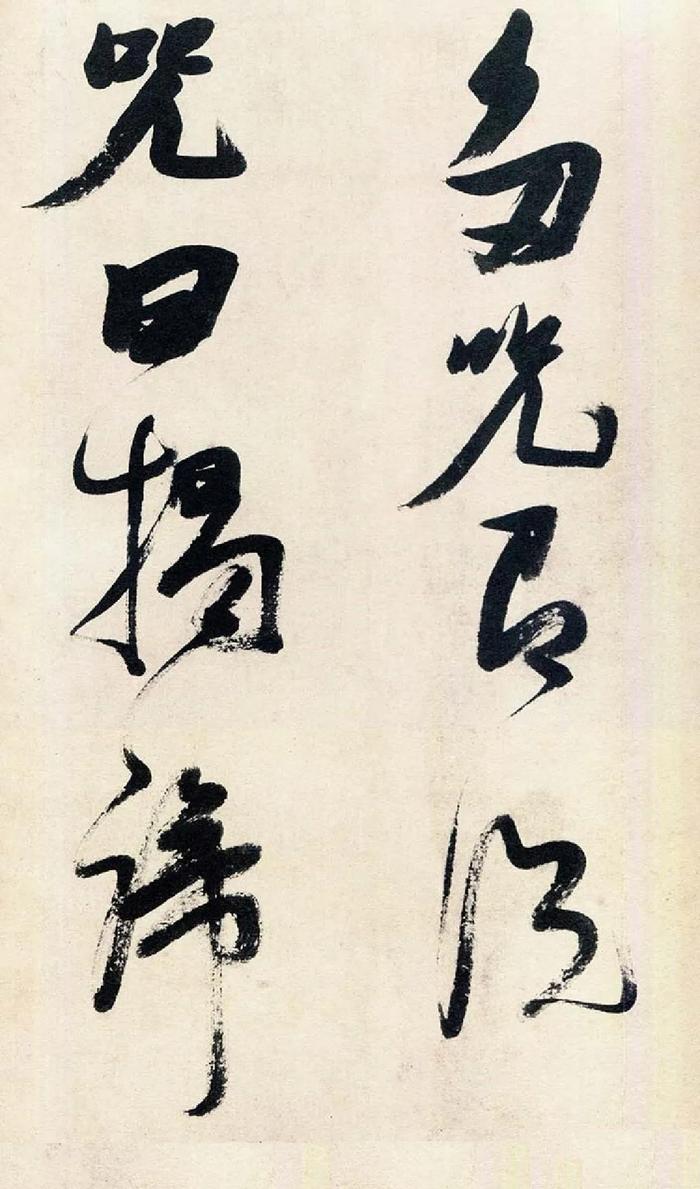 多咒即说
咒曰揭谛